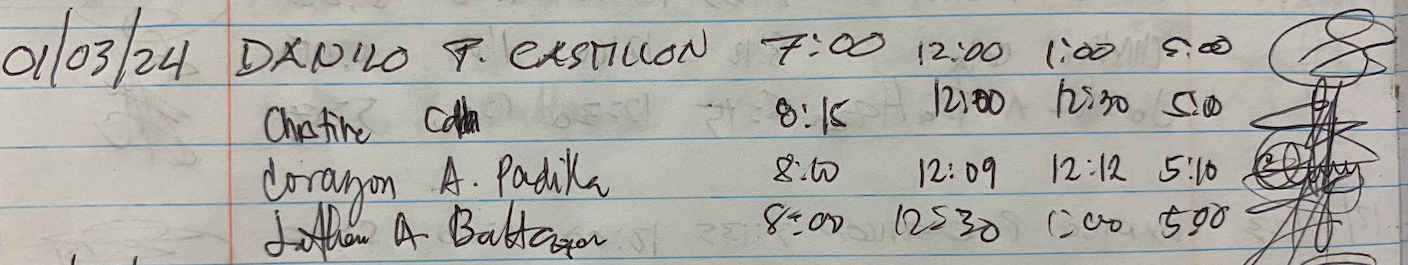 01/03/24 DANILO P. CASTILLON 7:00 12:00 1:00 5:00
Christine 8:15 12:00 12:30 5:0
Corazon A. Padilla 8:00 12:09 12:12 5:10
A Baltazar 8:00 12:30 1:00 5:00